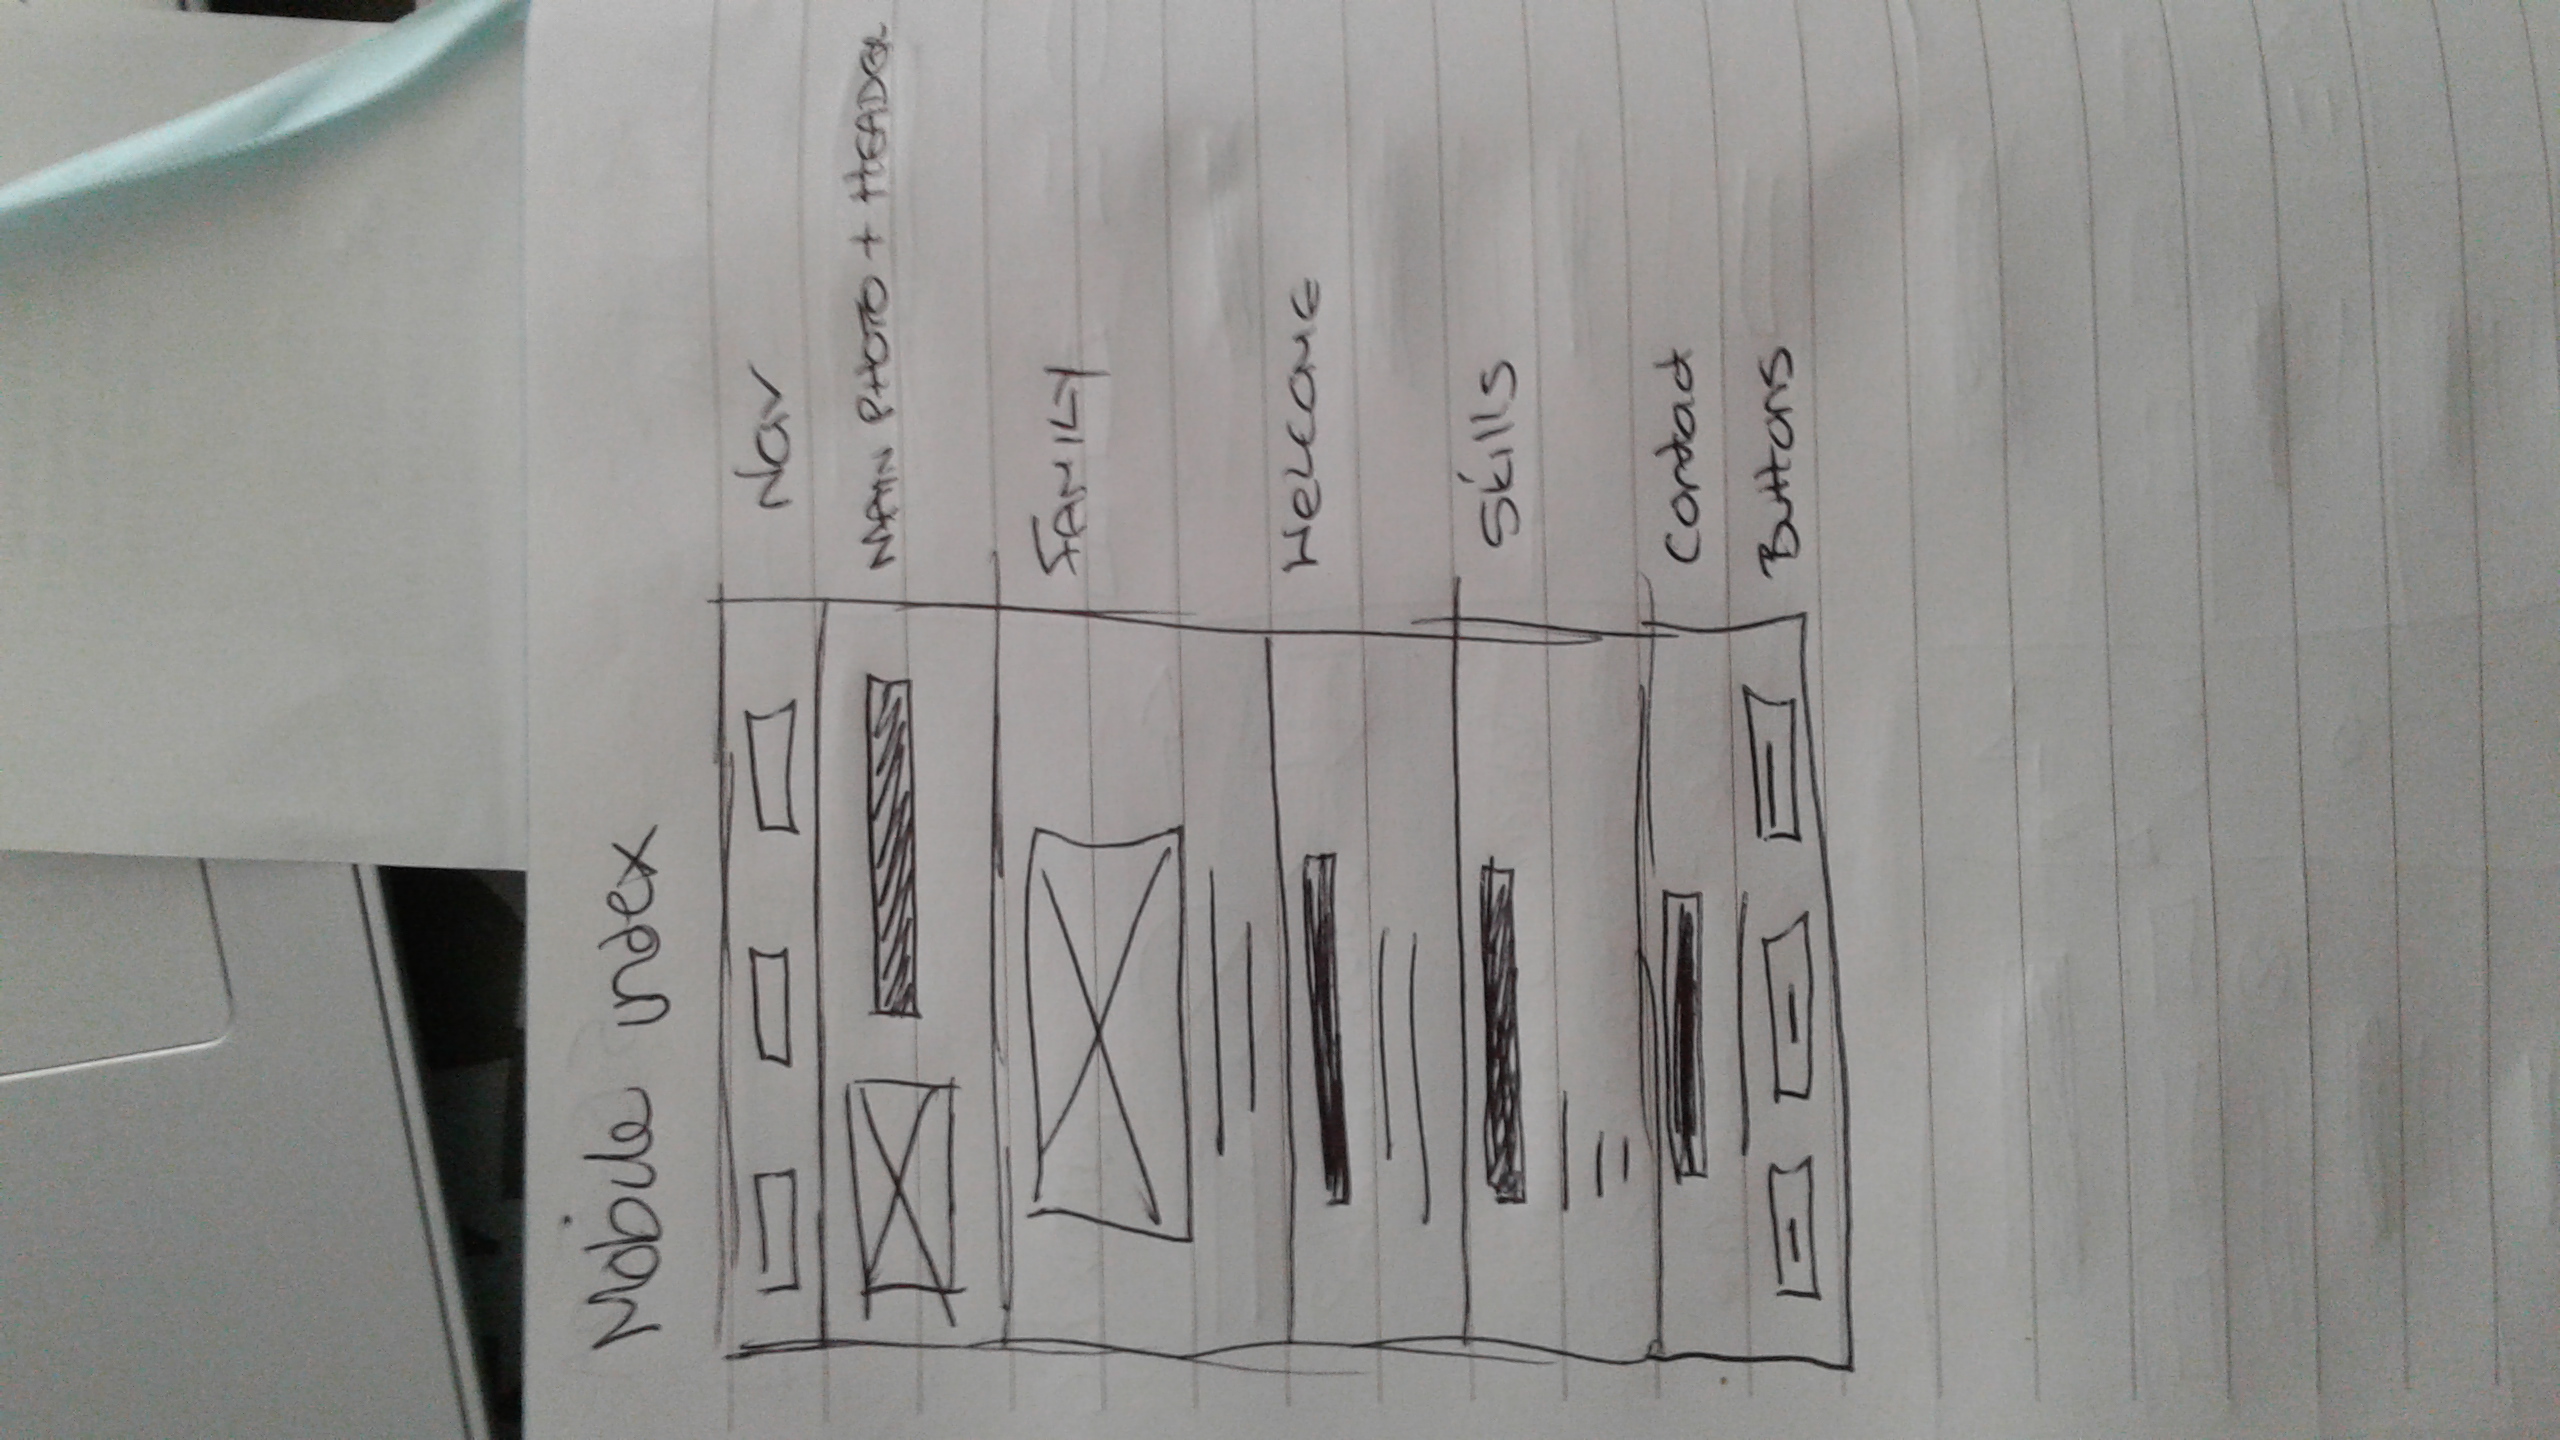 Mobile index
Nav
MAIN PHOTO + HEADER
FAMILY
WELCOME
Skills
Contact
Buttons